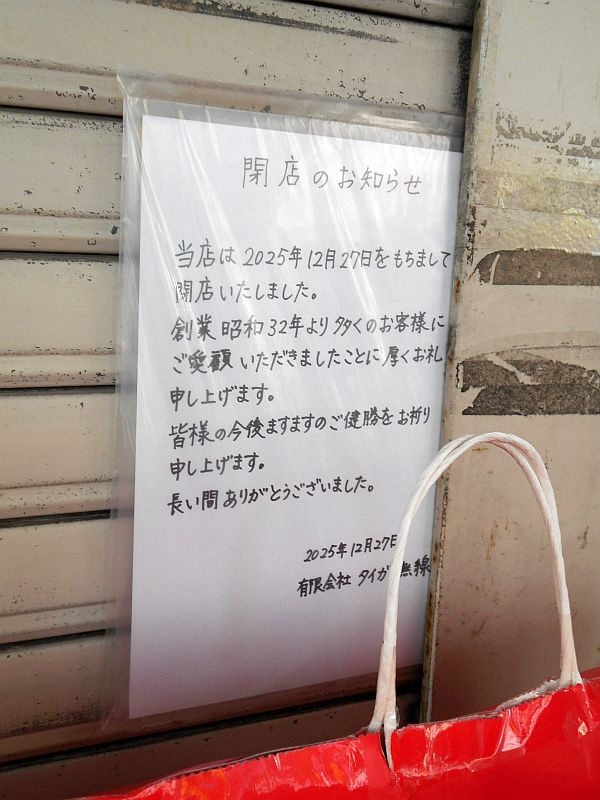 閉店のお知らせ
当店は2025年12月27日をもちまして
閉店いたしました。
創業昭和32年より多くのお客様に
ご愛顧いただきましたことに厚くお礼
申し上げます。
皆様の今後ますますのご健勝をお祈り
申し上げます。
長い間ありがとうございました。
2025年12月27日
有限会社 タイガ 無線